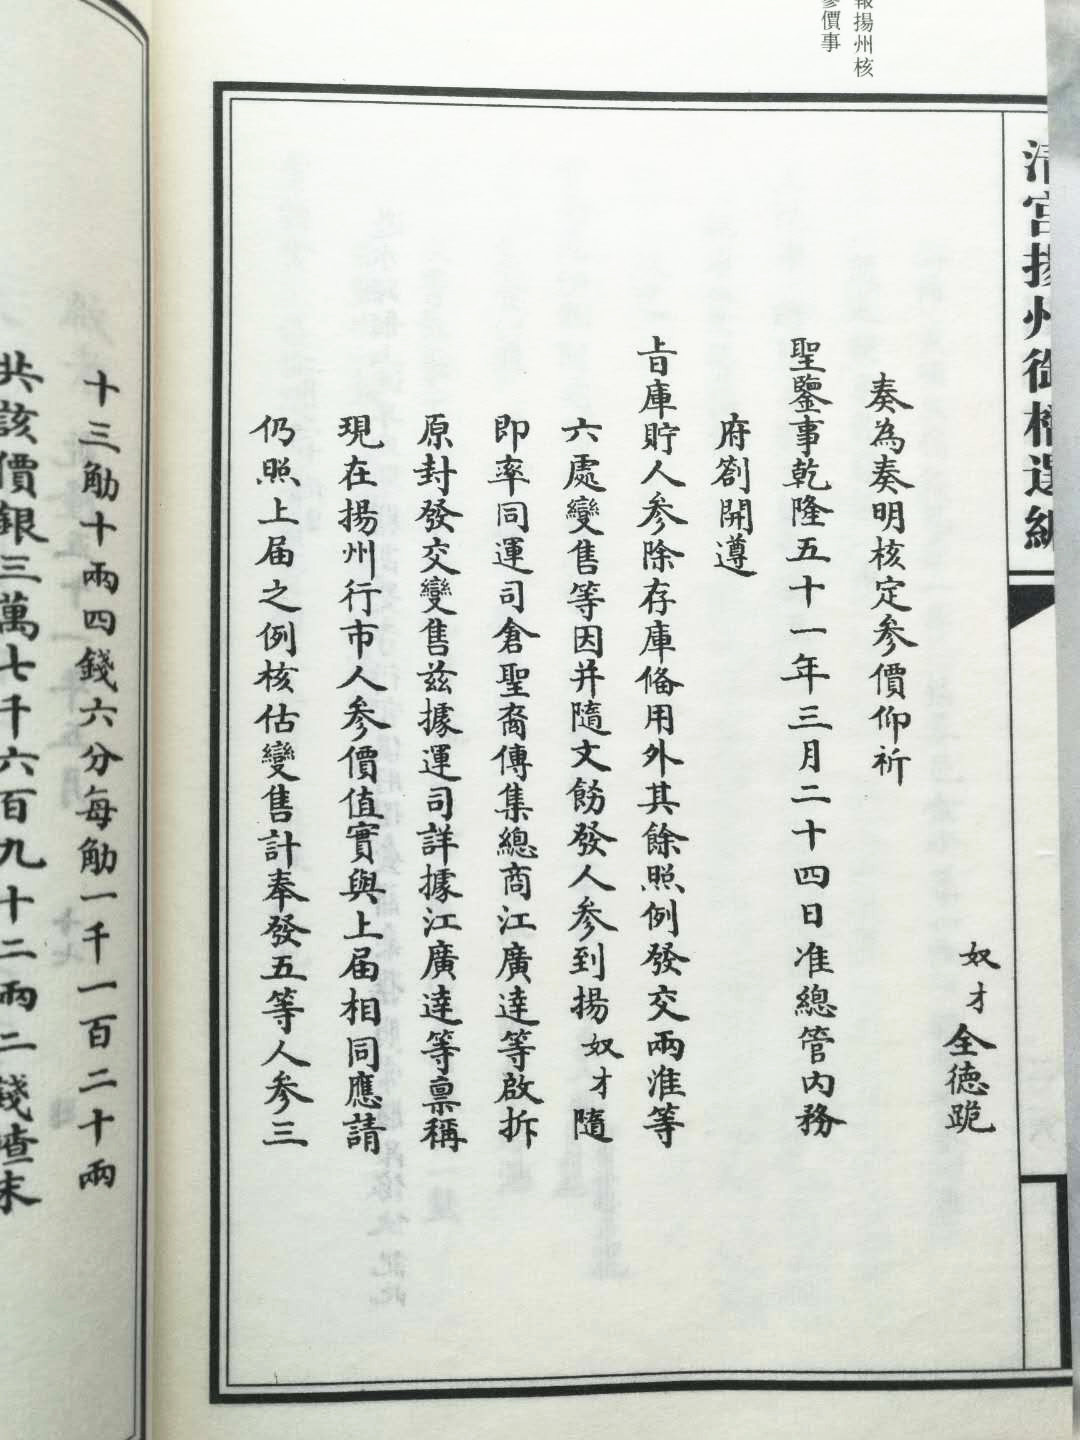 報揚州核
參價事
清宮揚州御檔選編
奴才全德跪
奏為奏明核定參價仰祈
聖鑒事乾隆五十一年三月二十四日准總管內務
府劄開遵
旨庫貯人參除存庫俻用外其餘照例發交兩淮等
六處變售等因并隨文飭發人參到揚奴才隨
即率同運司倉聖裔傳集總商江廣達等啟拆
原封發交變售兹據運司詳據江廣達等禀稱
現在揚州行市人參價值實與上届相同應請
仍照上届之例核估變售計奉發五等人參三
十三觔十兩四錢六分每觔一千一百二十兩
共該價銀三萬七千六百九十二兩二錢喳末